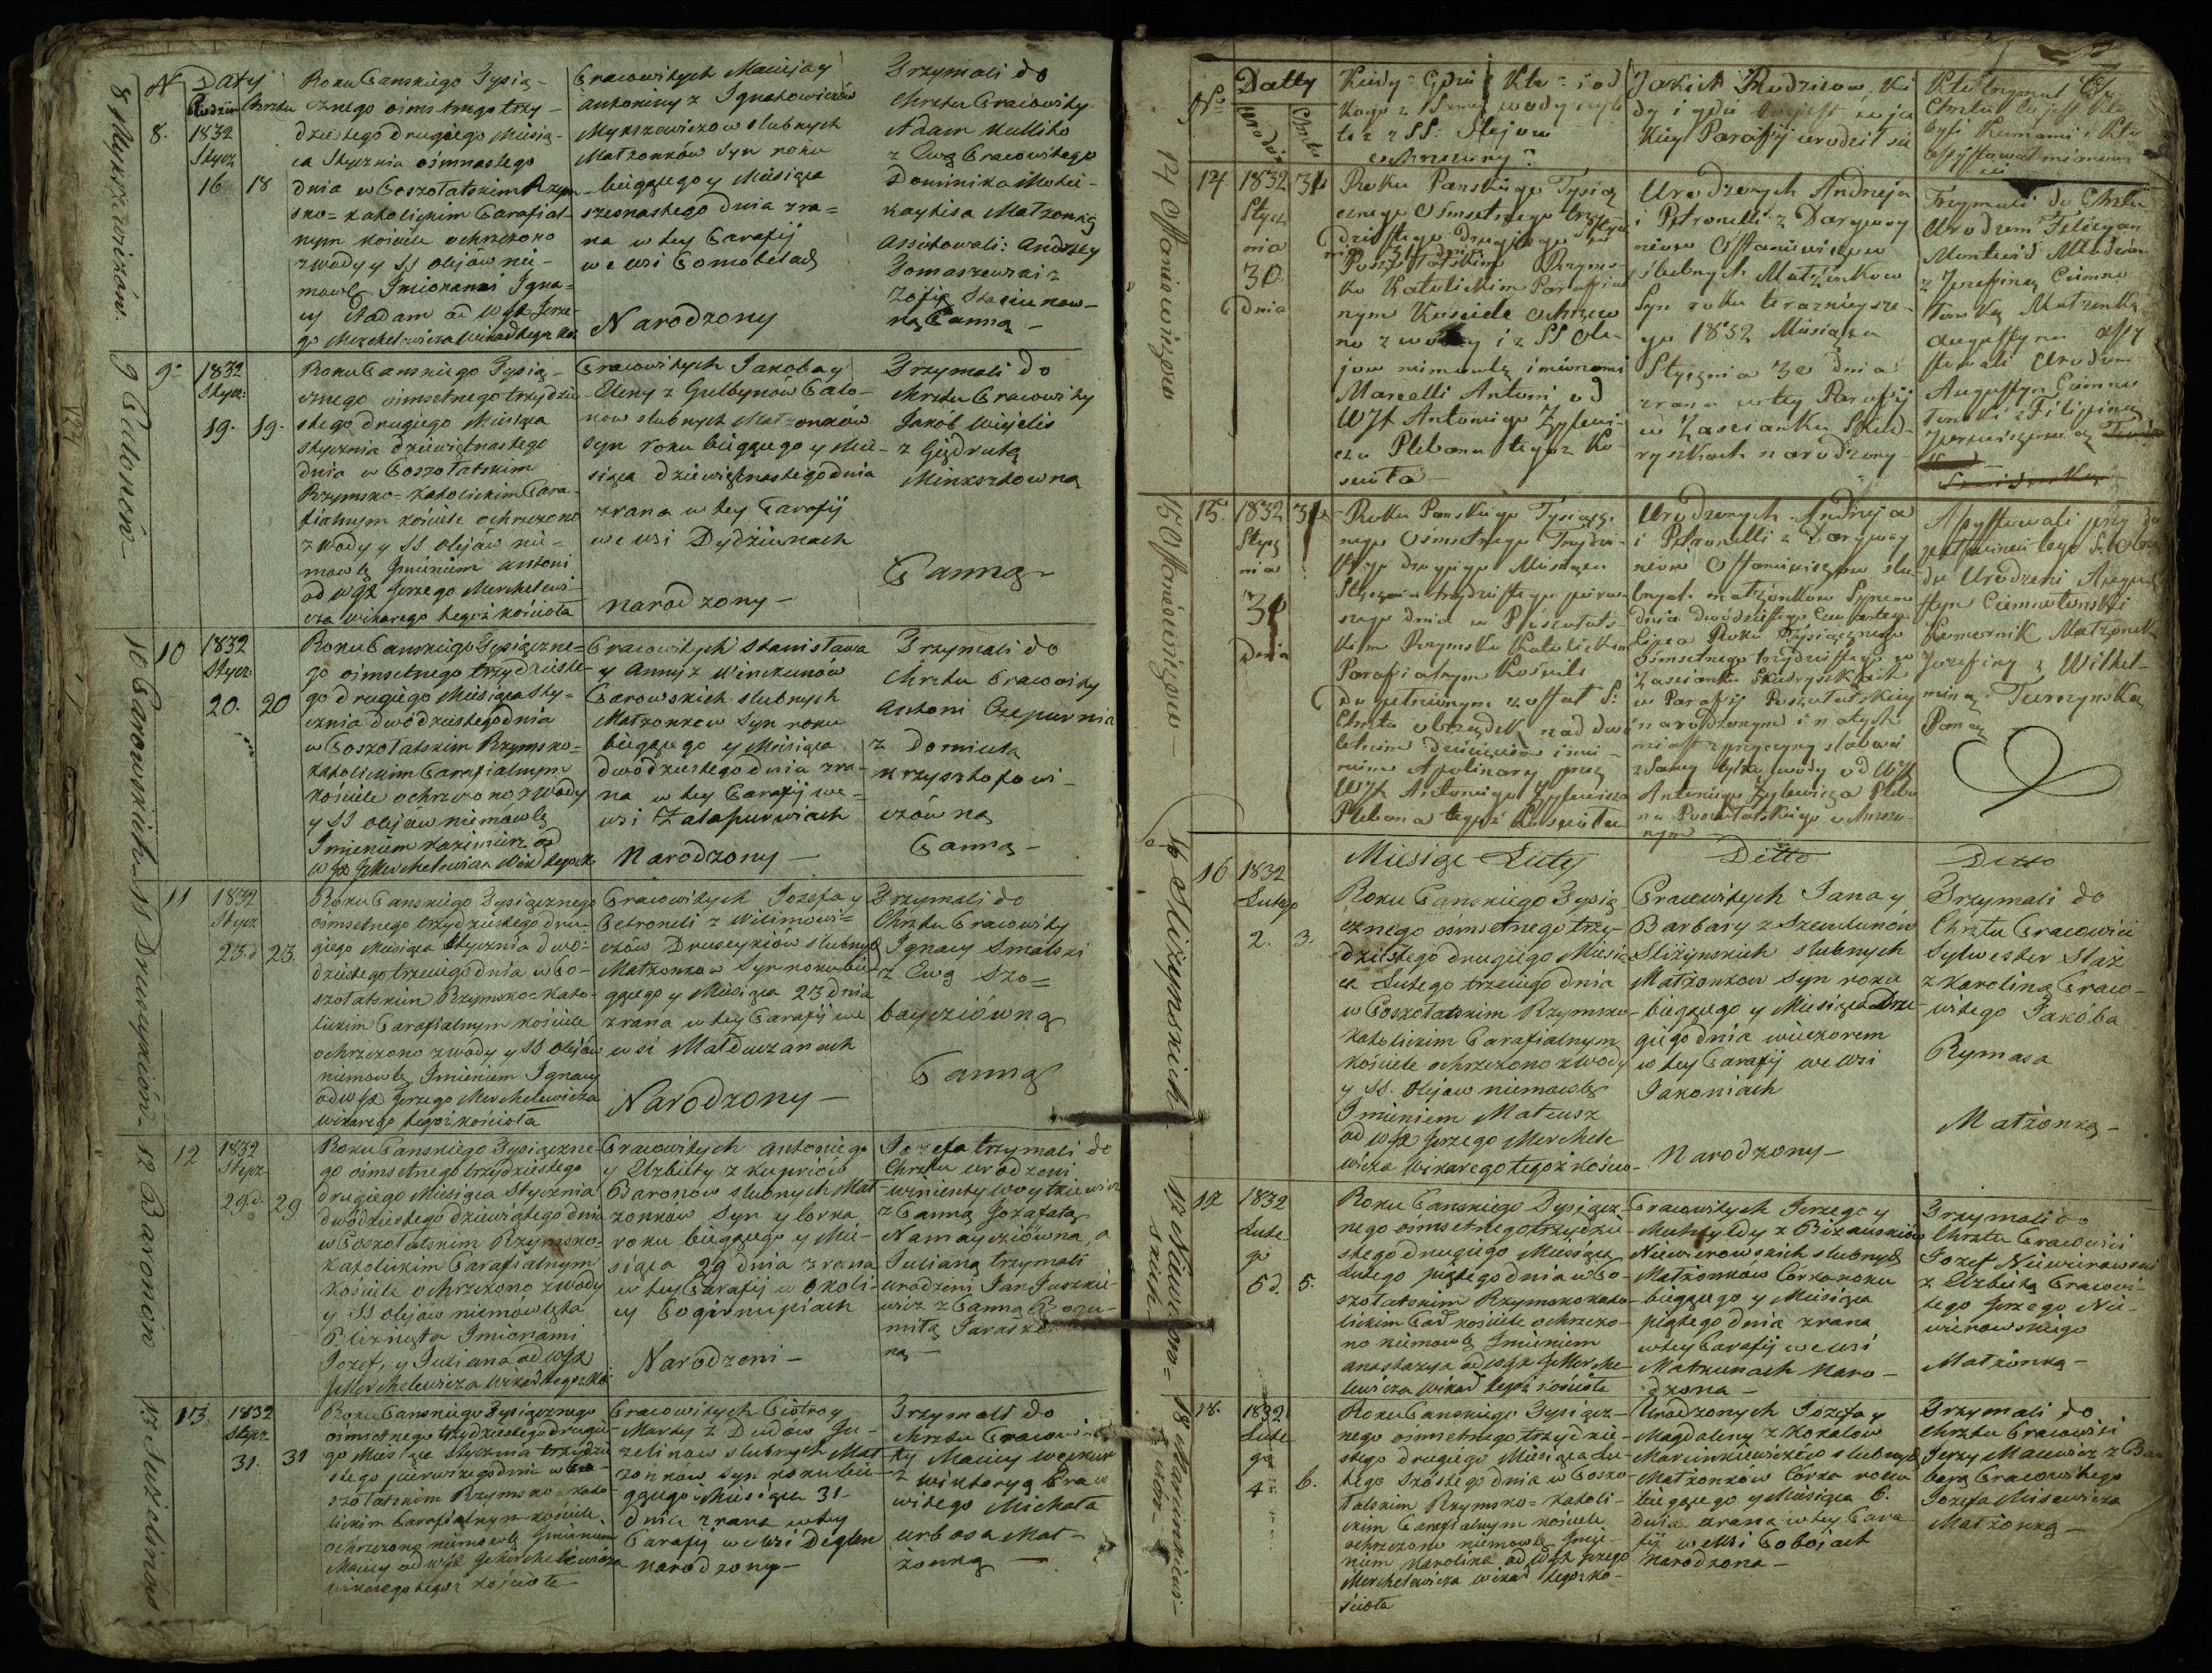 N Daty
Rodzin Chrztu
8 Mykszewiczów.
8. 1832
Stycz
16 18
Roku Pańskiego Tysią-
cznego ośmsetnego trzy-
dziestego drugiego Miesią-
ca Stycznia ośmnastego
dnia w Poszołatskim Rzym-
sko=katolickim Parafial-
nym kościele ochrzczono
z wody y SS Olejów nie-
mowlę Imionami Igna-
cy Adam od WJX Jerze-
go Merchelewicza Wikar tegoż Ko:
Pracowitych Macieja y
Antoniny z Ignatowiczów
Mykszewiczow slubnych
Małżonków Syn roku
bieggcego y Miesiąca
szesnastego dnia zra=
na w tey Parafij
we wsi Pomobelach
Narodzony
Trzymali do
Chrztu Pracowity
Adam Mulliko
z Ewą Pracowitego
Dominika
Małżonką
Assistowali: Andrzey
Tomaszewski z
Zofią Stasiunow-
ną Panną -
9. 1832
Stycz:
19. 19.
Roku Pańskiego Tysią-
cznego ośmsetnego trzydzie-
stego drugiego Miesiąca
Stycznia dziewiętnastego
dnia w Poszołatskim
Rzymsko=katolickim Para-
fialnym kościele ochrzczono
z wody y SS Olejów nie=
mowlę Imieniem Antoni
od WJX Jerzego Merchelewi-
cza Wikarego tegoż kościoła
Pracowitych Jakoba y
Eleny z Gulbynów Palo-
now slubnych Małżonków
Syn roku bieggcego y Mie-
siąca dziewiętnastego dnia
zrana w tey Parafij
we wsi Dydziunach
narodzony -
Trzymali do
Chrztu Pracowity
Jakób Wiżelis
z Giędrutą
Minksztowną
Panną
10 Parowskich
10 1832
Stycz
20. 20
Roku Pańskiego Tysiączne=
go ośmsetnego trzydzieste-
go drugiego Miesiąca Sty=
cznia dwódziestego dnia
w Poszołatskim Rzymsko=
katolickim Parafialnym
kościele ochrzczono z wody
y SS olejów niemowlę
Imieniem Kazimierz od
WJX JMerchelewicza Wikar tegoż K.
Pracowitych Stanisława
y Anny z Winckunów
Parowskich slubnych
Małżonkow Syn roku
bieggcego y Miesiąca
dwodziestego dnia zra-
na w tey Parafij we-
wsi Zatapurwiach
Narodzony -
Trzymali do
Chrztu Pracowity
Antoni Czepurnia
z Domicelą
Krzysztofowi-
czówną
Panną -
11 Druseykiów
11 1832
Stycz
23.d 23.
Roku Pańskiego Tysiącznego
ośmsetnego trzydziestego dru-
giego Miesiąca Stycznia dwó-
dziestego trzeciego dnia w Po-
szołatskim Rzymsko=kato-
lickim Parafialnym kościele
ochrzczono z wody y SS Olejów
niemowlę Imieniem Ignacy
od WJX Jerzego Merchelewicza
Wikarego tegoż kościoła
Pracowitych Jozefa y
Petroneli z Wilimowi=
czów Druseykiów slubnych
Małżonkow Syn roku bie-
ggcego y Miesiąca 23 dnia
zrana w tey Parafij we
wsi Matduczanach
Narodzony -
Trzymali do
Chrztu Pracowity
Ignacy Smalski
z Ewą Szo=
bayziówną
Panną
12 Baronów
12 1832
Stycz
29d. 29
Roku Pańskiego Tysiączne-
go ośmsetnego trzydziestego
drugiego Miesiąca Stycznia
dwódziestego dziewiątego dnia
w Poszołatskim Rzymsko=
katolickim Parafialnym
kościele ochrzczono z wody
y SS Olejów niemowlęta
Bliźnięta Imionami
Jozef, y Juliana od WJX
JMerchelewicza Wikar tegoż Ko:
Pracowitych Antoniego
y Elżbiety z Kupriow
Baronow slubnych Mał-
żonkow Syn y Corka
roku bieggcego y Mie-
siąca 29 dnia zrana
w tey Parafij w Okoli-
cy Pogirnupiach
Narodzeni -
Jozefa trzymali do
Chrztu urodzeni
Wincenty Woytkiewicz
z Panną Jozafatą
Namayziówną, a
Julianę trzymali
urodzeni Jan Juszkie-
wicz z Panną Bogu-
miłą
ną -
13 Jużelinów
13. 1832
Stycz
31. 31
Roku Pańskiego Tysiącznego
ośmsetnego trzydziestego drugie-
go Miesiąca Stycznia trzydzie-
stego pierwszego dnia w Po-
szołatskim Rzymsko=kato-
lickim Parafialnym kościele
ochrzczono niemowlę Imieniem
Maciey od WJX JMerchelewicza
Wikarego tegoż kościoła -
Pracowitych Piotra y
Marty z Dudow Ju-
żelinow slubnych Mał-
żonkow Syn roku bie-
ggcego Miesiąca 31 -
dnia zrana w tey
Parafij we wsi Deglun
narodzony -
Trzymali do
Chrztu Pracowi-
ty Maciey
z Wiktoryą Praco
witego Michała
Urbosa Mał-
żonką -
No Datty
Urodz: Chrztu
Kiedy? Gdzie? Kto? i od
kogo z Samey wody czyli
też z SS: Olejow
ochrzczony?
Jakich Rodzicow, Kie
dy i gdzie
kiey Parafij urodził sie
Kto trzymał
byli Kumami i Kto
assystował
14 Ostaniewiczow
14 1832 31
Stycz
nia
30.
Dnia
Roku Pańskiego Tysią
cznego Osmsetnego trzy-
dziestego drugiego
Poszołatskim Rzyms-
ko Katolickim Parafial
nym Kosciele ochrzczo
no z wody i z SS Ole-
jow niemowlę imionami
Marcelli Antoni od
WJX Antoniego Zylewi-
cza Plebana tegoż Ko-
scioła -
Urodzonych Andrzeja
i Petronelli z Darguny
niewiczow
slubnych Małżonkow
Syn roku teraznieysze-
go 1832 Miesiąca
Stycznia 30 dnia
zrana w tey Parafij
w Zascianku Skud-
ryszkach narodzony -
Trzymali do Chrztu
Urodzeni Felicyan
z Jozefiną
Małżonką
Augustyna assy
stowali Urodzeni
Augustyn
z Filipiną
15. 1832 31
Stycz
nia
31
Dnia
Roku Pańskiego Tysiącz-
nego Osmsetnego Trzydzie-
stego drugiego Miesiąca
Stycznia trzydziestego pierw-
szego dnia w Poszołats-
kim Rzymsko Katolickim
Parafialnym Kościele
Dopełnionym został S:
Chrztu obrządek nad dwu
letnim dziecięciem imie-
niem Apolinary przez
WJX Antoniego Zylewicza
Plebana tegoż Kościoła
Urodzonych Andrzeja
i Petronelli z
slu-
bnych małżonkow Synem
dnia dwódziestego czwartego
Lipca Roku Tysiącznego
ośmsetnego trzydziestego w
Zascianku Skudryszkach
w Parafij Poszołatskiey
narodzonym i natych
miast z przyczyny słabości
z Samey tylko wody od WJX
Antoniego Zylewicza Pleba
na Poszołatskiego ochrzczo-
nym
Assystowali przy do
pełnieniu tego S. Obrzę
du Urodzeni Augu
styn
Komornik Małżonek
Jozefiny z Wilhel-
miną Turzynską
Panną
Miesiąc Luty Ditto Ditto
16 Sliżynskich
16 1832
Lutego
2. 3.
Roku Pańskiego Tysią
cznego ośmsetnego trzy-
dziestego drugiego Miesią
ca Lutego trzeciego dnia
w Poszołatskim Rzymsko-
katolickim Parafialnym
kościele ochrzczono z wody
y SS. Olejow niemowlę
Imieniem Mateusz
od WJX Jerzego Merchele
wicza Wikarego tegoż kościo-
Pracowitych Jana y
Barbary z Szendunów
Sliżynskich slubnych
Małżonkow Syn roku
bieggcego y Miesiąca dru-
giego dnia wieczorem
w tey Parafij we wsi
Jakoniach
Narodzony -
Trzymali do
Chrztu Pracowici
Sylwester Staż
z Karoliną Praco-
witego Jakóba
Rymasa
Małżonką -
17 Niewierow=
skich
17 1832
Lute
go
5d. 5.
Roku Pańskiego Tysiącz
nego ośmsetnego trzydzie-
stego drugiego Miesiąca
Lutego piątego dnia w Po-
szołatskim Rzymsko kato-
lickim Par kościele ochrzczo-
no niemowlę Imieniem
Anastazya od WJX JMerche-
lewicza Wikar tegoż kościoła
Pracowitych Jerzego y
Matyldy z
Niewierowskich slubnych
Małżonków Córka roku
bieggcego y Miesiąca
piątego dnia zrana
w tey Parafij we wsi
Matkunach Naro-
dzona -
Trzymali do
Chrztu Pracowici
Jozef Niewierowski
z Elżbietą Pracowi-
tego Jerzego Nie-
wierowskiego
Małżonką -
18 Marcinkiewi-
czów -
18. 1832
Lute
go
4 6.
Roku Pańskiego Tysiącz-
nego ośmsetnego trzydzie-
stego drugiego Miesiąca Lu-
tego szóstego dnia w Poszo-
łatskim Rzymsko=katoli-
ckim Parafialnym kościele
ochrzczono niemowlę Imie-
niem Karolina od WJX Jerzego
Merchelewicza Wikar tegoż ko-
ścioła
Urodzonych Józefa y
Magdaleny z Kozałow
Marcinkiewiczów slubnych
Małżonków Córka roku
bieggcego y Miesiąca 6.
dnia zrana w tey Para
fij we wsi Pobojach
narodzona -
Trzymali do
Chrztu Pracowici
Jerzy Macewicz z Bar
barą Pracowitego
Jozefa Misiewicza
Małżonką -